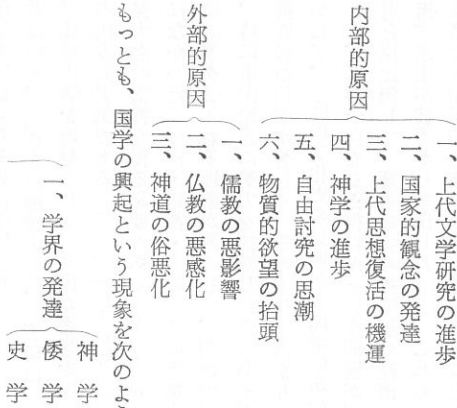 内部的原因
一、上代文学研究の進歩
二、国家的観念の発達
三、上代思想復活の機運
四、神学の進歩
五、自由討究の思潮
六、物質的欲望の抬頭
外部的原因
一、儒教の悪影響
二、仏教の悪感化
三、神道の俗悪化
もっとも、国学の興起という現象を次のよう
一、学界の発達
神学
倭学
史学